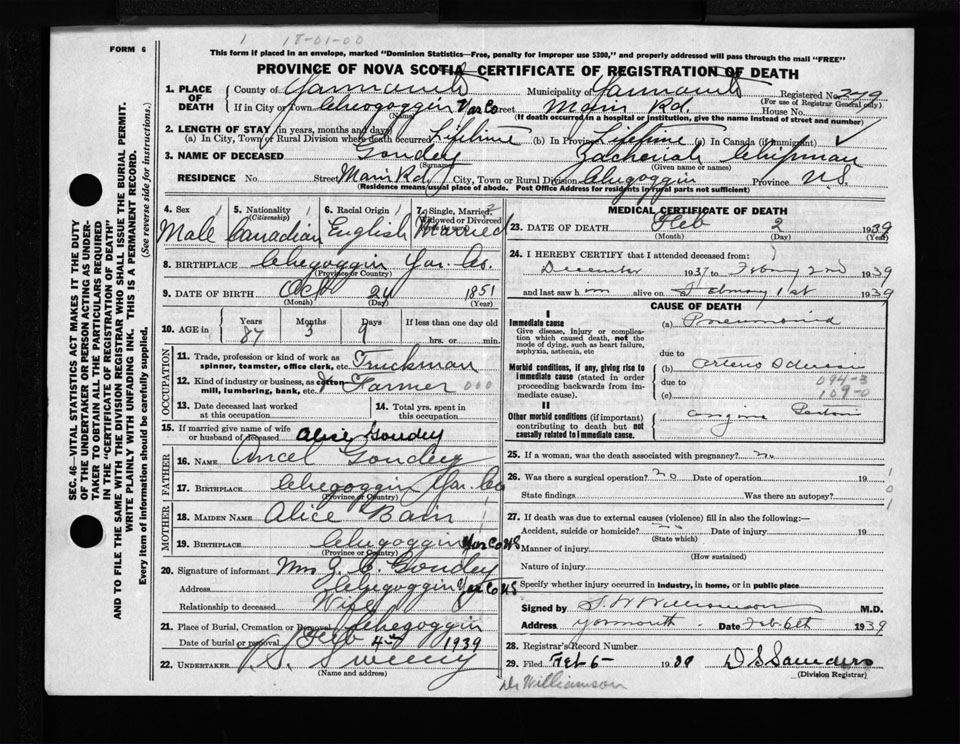 1 18-01-00
FORM 6
This form if placed in an envelope, marked "Dominion Statistics—Free, penalty for improper use $300," and properly addressed will pass through the mail "FREE"
PROVINCE OF NOVA SCOTIA—CERTIFICATE OF REGISTRATION OF DEATH
SEC. 46—VITAL STATISTICS ACT MAKES IT THE DUTY
OF THE UNDERTAKER OR PERSON ACTING AS UNDER-
TAKER TO OBTAIN ALL THE PARTICULARS REQUIRED
IN THE "CERTIFICATE OF REGISTRATION OF DEATH"
AND TO FILE THE SAME WITH THE DIVISION REGISTRAR WHO SHALL ISSUE THE BURIAL PERMIT.
WRITE PLAINLY WITH UNFADING INK. THIS IS A PERMANENT RECORD.
Every item of information should be carefully supplied.
(See reverse side for instructions.)
1. PLACE OF DEATH
County of Yarmouth Municipality of Yarmouth Registered No. 379
(For use of Registrar General only)
If in City or Town Chegoggin Yar Co Street Main Rd. House No.
(Name) (If death occurred in a hospital or institution, give the name instead of street and number)
2. LENGTH OF STAY (in years, months and days)
(a) In City, Town or Rural Division where death occurred Lifetime (b) In Province Lifetime (c) In Canada (if immigrant)
3. NAME OF DECEASED Goudey Zachariah Chipman
(Surname) (Given name or names)
RESIDENCE No. Street Main Rd City, Town or Rural Division Chegoggin Province N.S.
(Residence means usual place of abode. Post Office Address for residents in rural parts not sufficient)
4. Sex 5. Nationality (Citizenship) 6. Racial Origin 7. Single, Married, Widowed or Divorced
Male Canadian English Married
8. BIRTHPLACE Chegoggin Yar. Co.
(Province or Country)
9. DATE OF BIRTH Oct 24 1851
(Month) (Day) (Year)
10. AGE in Years Months Days If less than one day old
87 3 9 hrs. or min.
OCCUPATION
11. Trade, profession or kind of work as spinner, teamster, office clerk, etc. Truckman
12. Kind of industry or business, as cotton mill, lumbering, bank, etc. Farmer 000
13. Date deceased last worked at this occupation
14. Total yrs. spent in this occupation
15. If married give name of wife or husband of deceased Alice Goudey
FATHER
16. NAME Ancel Goudey
17. BIRTHPLACE Chegoggin Yar. Co
(Province or Country)
MOTHER
18. MAIDEN NAME Alice Bain
19. BIRTHPLACE Chegoggin Yar Co NS
(Province or Country)
20. Signature of informant Mrs Z. C. Goudey
Address Chegoggin Yar Co NS
Relationship to deceased Wife
21. Place of Burial, Cremation or Removal Chegoggin
Date of burial or removal Feb 4th 1939
22. UNDERTAKER V.S. Sweeny
(Name and address)
MEDICAL CERTIFICATE OF DEATH
23. DATE OF DEATH Feb 2 1939
(Month) (Day) (Year)
24. I HEREBY CERTIFY that I attended deceased from:
December 1937 to Febuary 2nd 1939
and last saw him alive on Febuary 1st 1939
CAUSE OF DEATH
I
Immediate cause (a) Pneumonia
Give disease, injury or complication which caused death, not the mode of dying, such as heart failure, asphyxia, asthenia, etc
due to
Morbid conditions, if any, giving rise to immediate cause (stated in order proceeding backwards from immediate cause).
(b)
due to 094-3
(c) 109-0
II
Other morbid conditions (if important) contributing to death but not causally related to immediate cause.
25. If a woman, was the death associated with pregnancy? no
26. Was there a surgical operation? no Date of operation 19
State findings Was there an autopsy?
27. If death was due to external causes (violence) fill in also the following:—
Accident, suicide or homicide? Date of injury 19
(State which)
Manner of injury
(How sustained)
Nature of injury
Specify whether injury occurred in industry, in home, or in public place
Signed by S. W. Williamson M.D.
Address Yarmouth Date Feb. 6th 1939
28. Registrar's Record Number
29. Filed Feb-6- 1939 D S Saunders
(Division Registrar)
Dr Williamson